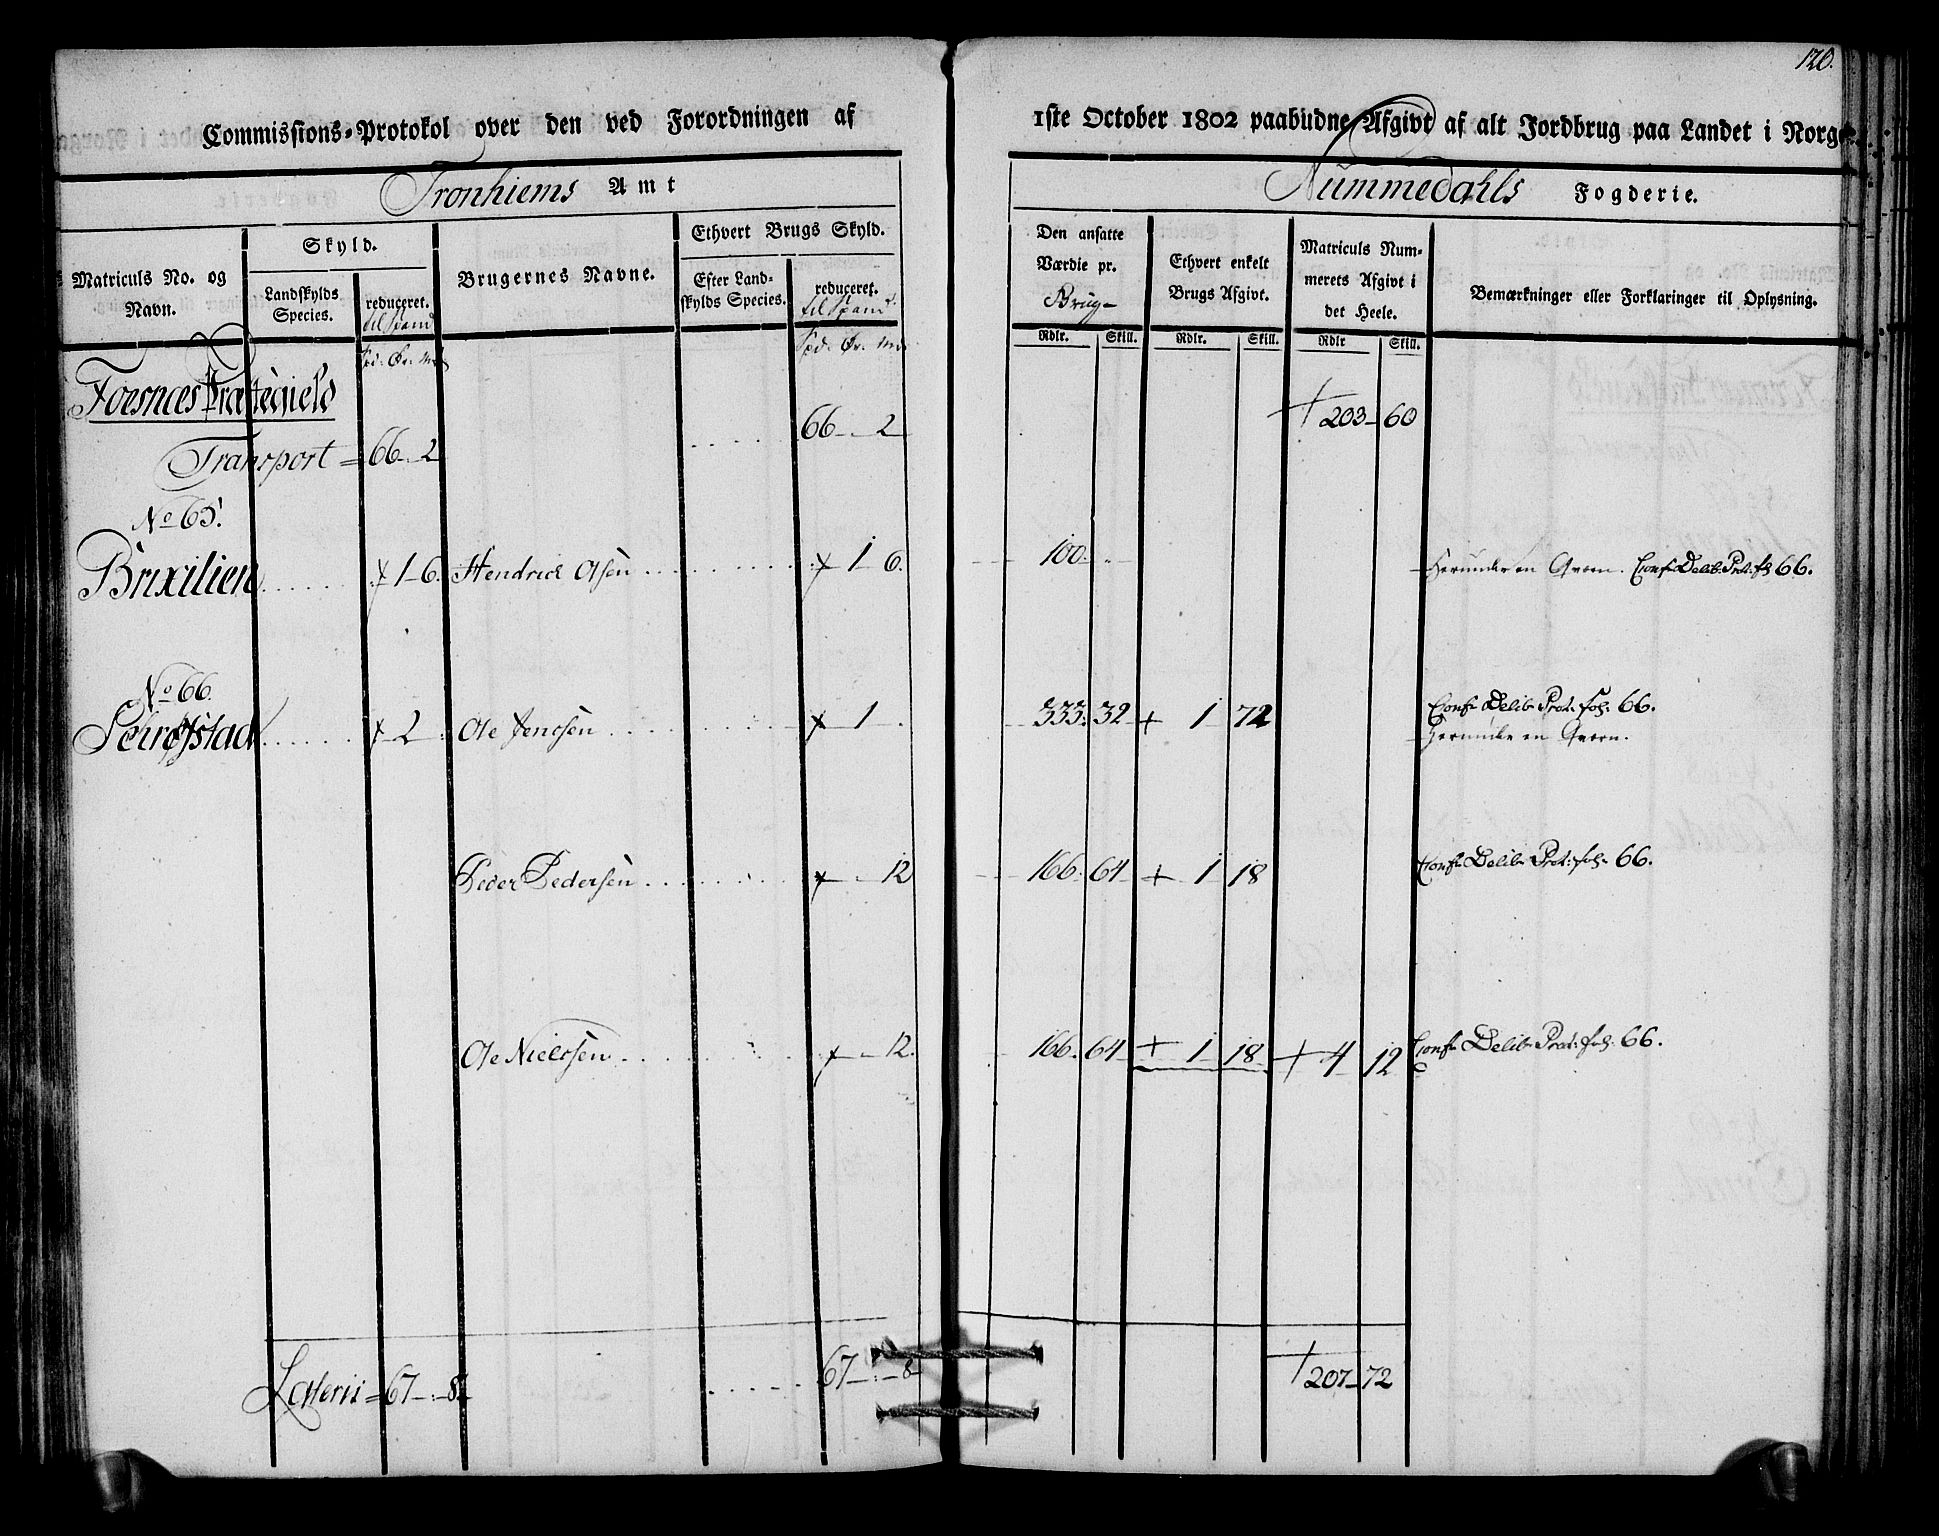 120.
Commissions-Protokol over den ved Forordningen af 1ste October 1802 paabudne Afgivt af alt Jordbrug paa Landet i Norge
Tronhiems Amt
Nummedahls Fogderie.
Matriculs No. og Navn.
Skyld.
Landskylds Species.
reduceret. til Spand
Brugernes Navne.
Ethvert Brugs Skyld.
Efter Landskylds Species.
reduceret. til Spand
Den ansatte Værdie pr. Brug
Ethvert enkelt Brugs Afgivt.
Matriculs Nummerets Afgivt i det Heele.
Bemærkninger eller Forklaringer til Oplysning.
Spd. Ør. Spd. Ør. Rdlr. Skill. Rdlr. Skill. Rdlr Skill.
Foesnæs Præstegield
Transport = 66 - 2 66 - 2 203 - 60
No 65.
Brixilien 1 - 6. Hendrich Olsen 1 6. 100. Herunder en Qværn. Conf. Delib. Prot. fol 66.
No 66.
2 Ole Jenssen 1 333. 32 1 72 Conf. Delib. Prot. fol. 66.
Herunder en Qværn.
Peder Pedersen 12 166. 64 1 18 Conf. Delib. Prot. fol. 66.
Ole Nielssen 12. 166. 64 1 18 4 12 Conf. Delib. Prot. fol. 66.
Lateris = 67 - 8 67 - 8 207 - 72